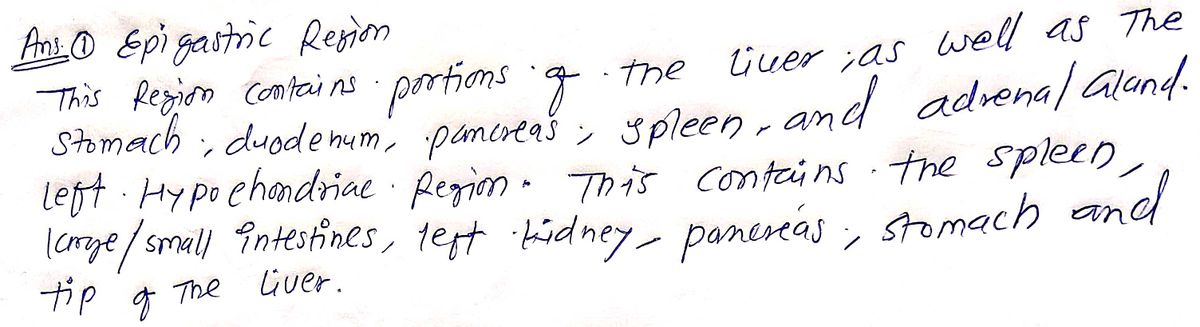 Ans. ① Epigastric Region
This Region contains portions of the liver, as well as The
stomach, duodenum, pancreas, spleen, and adrenal Gland.
left Hypochondriac Region. This contains the spleen,
large/small intestines, left kidney, pancreas, stomach and
tip of The liver.